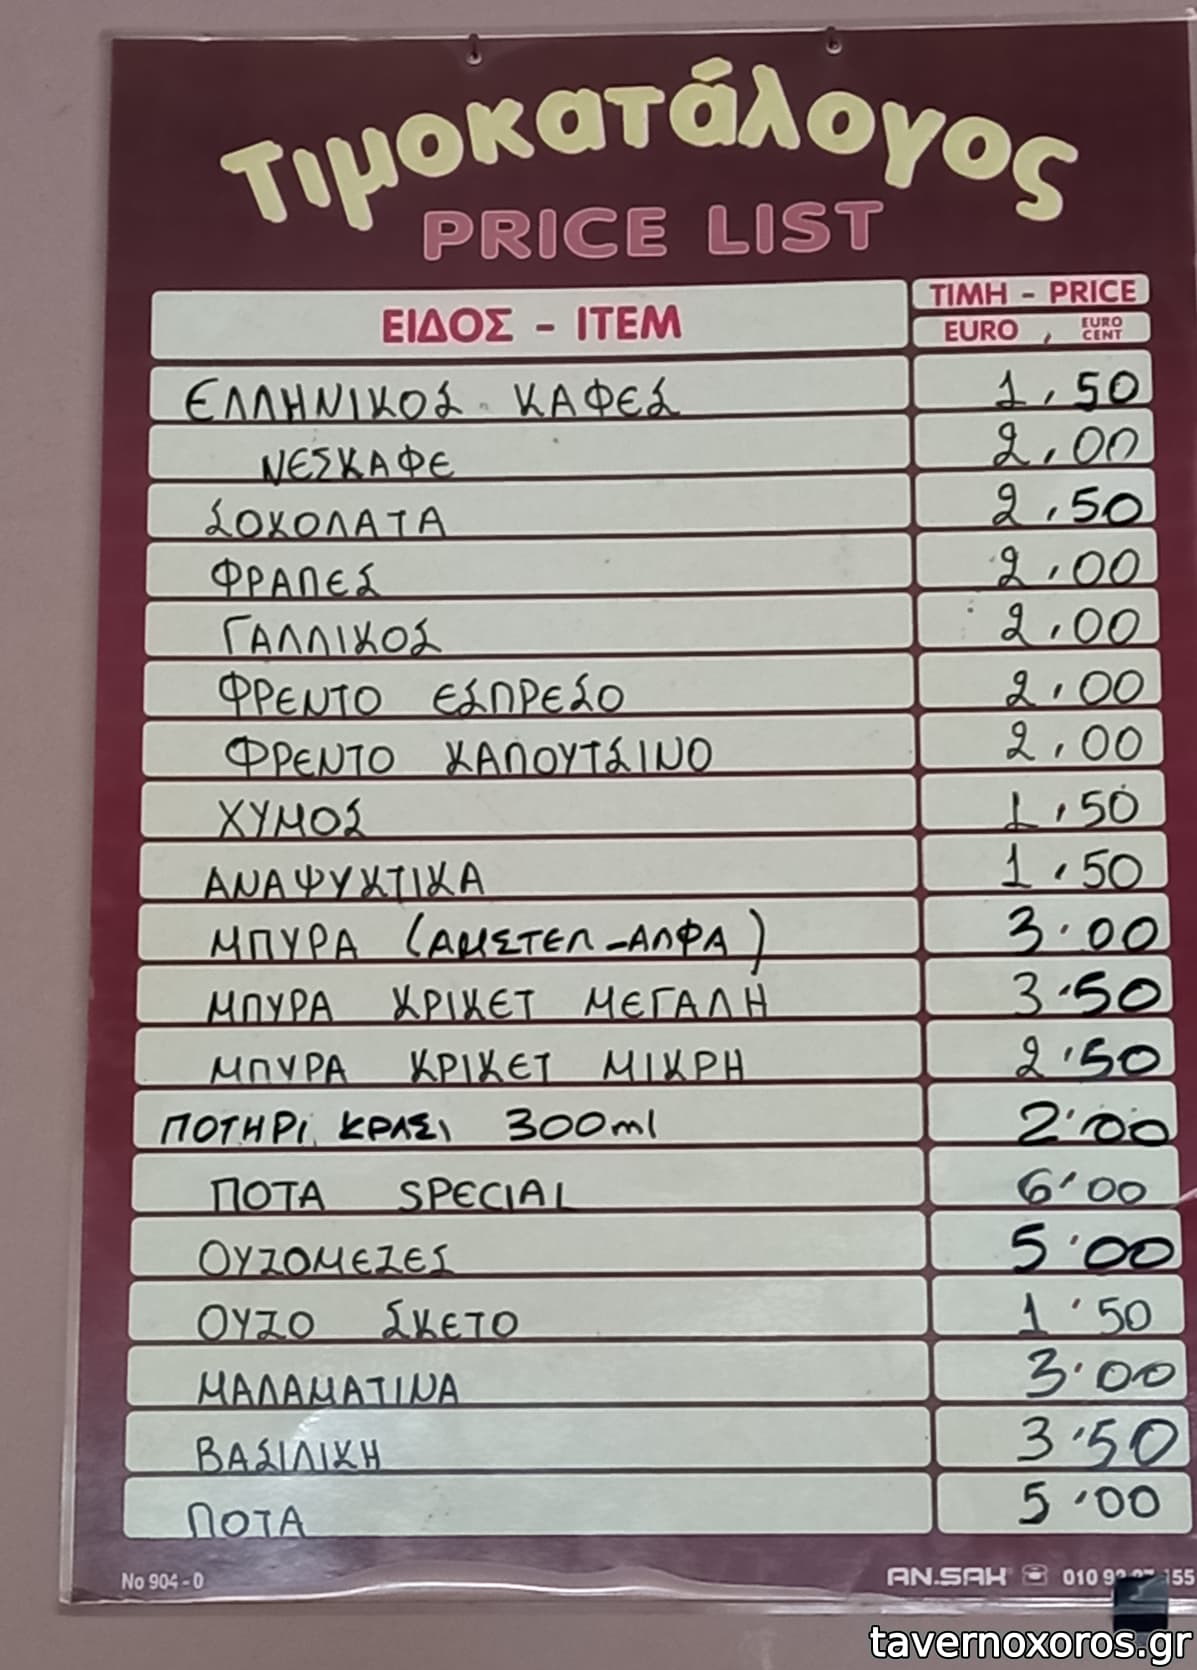 Τιμοκατάλογος
PRICE LIST
ΕΙΔΟΣ - ITEM ΤΙΜΗ - PRICE
EURO , EURO CENT
ΕΛΛΗΝΙΚΟΣ ΚΑΦΕΣ 1,50
ΝΕΣΚΑΦΕ 2,00
ΣΟΚΟΛΑΤΑ 2,50
ΦΡΑΠΕΣ 2,00
ΓΑΛΛΙΚΟΣ 2,00
ΦΡΕΝΤΟ ΕΣΠΡΕΣΟ 2,00
ΦΡΕΝΤΟ ΚΑΠΟΥΤΣΙΝΟ 2,00
ΧΥΜΟΣ 1,50
ΑΝΑΨΥΚΤΙΚΑ 1,50
ΜΠΥΡΑ (ΑΜΣΤΕΛ-ΑΛΦΑ) 3,00
ΜΠΥΡΑ ΚΡΙΚΕΤ ΜΕΓΑΛΗ 3,50
ΜΠΥΡΑ ΚΡΙΚΕΤ ΜΙΚΡΗ 2,50
ΠΟΤΗΡΙ ΚΡΑΣΙ 300ml 2,00
ΠΟΤΑ SPECIAL 6,00
ΟΥΖΟΜΕΖΕΣ 5,00
ΟΥΖΟ ΣΚΕΤΟ 1,50
ΜΑΛΑΜΑΤΙΝΑ 3,00
ΒΑΣΙΛΙΚΗ 3,50
ΠΟΤΑ 5,00
No 904 - D AN.SAK 010
tavernoxoros.gr